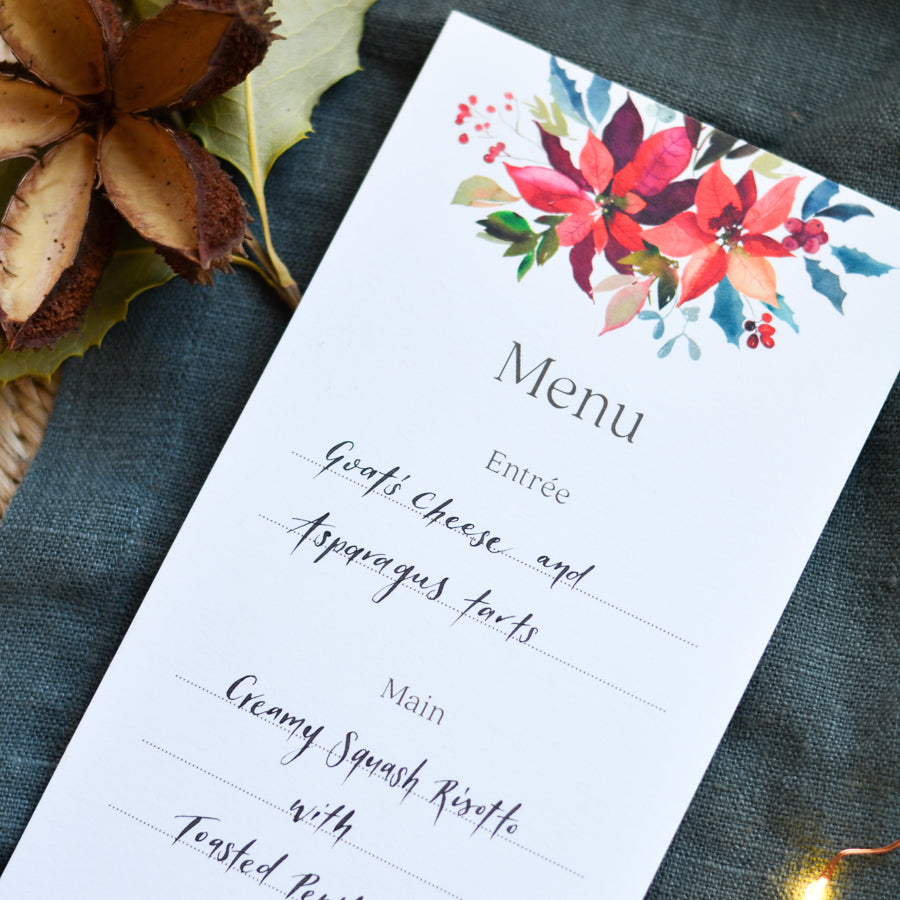 Menu
Entrée
Goat's Cheese and
Asparagus tarts
Main
Creamy Squash Risotto
with
Toasted